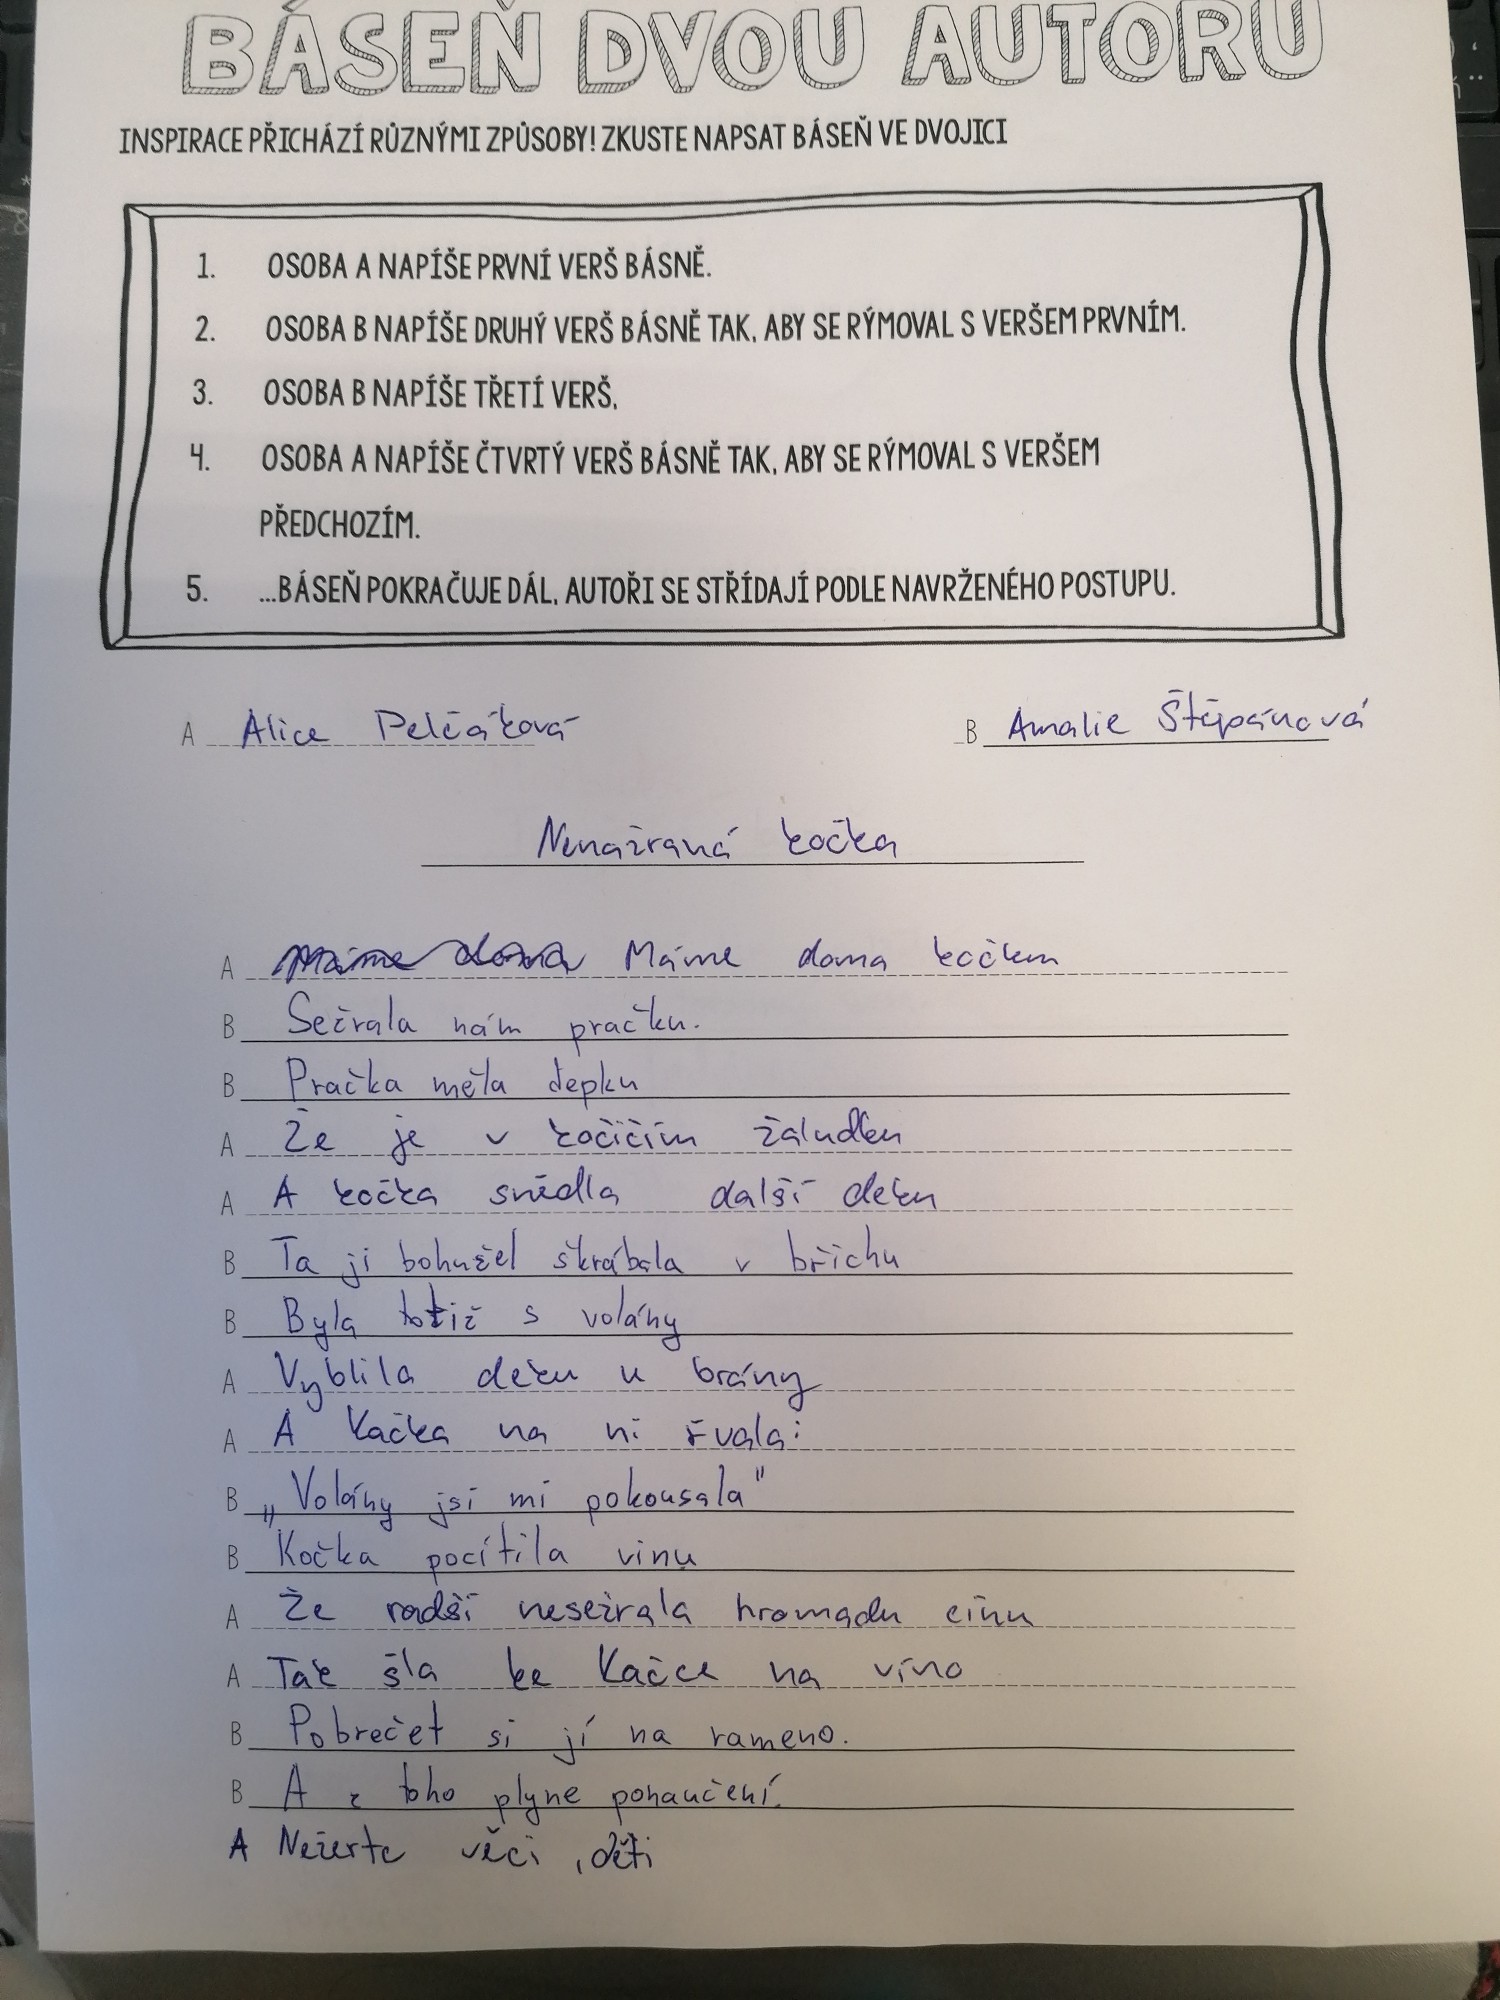 BÁSEŇ DVOU AUTORŮ
INSPIRACE PŘICHÁZÍ RŮZNÝMI ZPŮSOBY! ZKUSTE NAPSAT BÁSEŇ VE DVOJICI
1. OSOBA A NAPÍŠE PRVNÍ VERŠ BÁSNĚ.
2. OSOBA B NAPÍŠE DRUHÝ VERŠ BÁSNĚ TAK, ABY SE RÝMOVAL S VERŠEM PRVNÍM.
3. OSOBA B NAPÍŠE TŘETÍ VERŠ.
4. OSOBA A NAPÍŠE ČTVRTÝ VERŠ BÁSNĚ TAK, ABY SE RÝMOVAL S VERŠEM
PŘEDCHOZÍM.
5. ...BÁSEŇ POKRAČUJE DÁL, AUTOŘI SE STŘÍDAJÍ PODLE NAVRŽENÉHO POSTUPU.
A Alice Pelčáková B Amalie Štěpánová
Nenažraná kočka
A Máme doma Máme doma kočku
B Sežrala nám pračku.
B Pračka měla depku
A Že je v kočičím žaludku
A A kočka snědla další deku
B Ta jí bohužel škrábala v břichu
B Byla totiž s volány
A Vyblila deku u brány
A A Kačka na ni řvala:
B „Volány jsi mi pokousala"
B Kočka pocítila vinu
A Že radši nesežrala hromadu cínu
A Tak šla ke Kačce na víno
B Pobrečet si jí na rameno.
B A z toho plyne ponaučení.
A Nežerte věci, děti